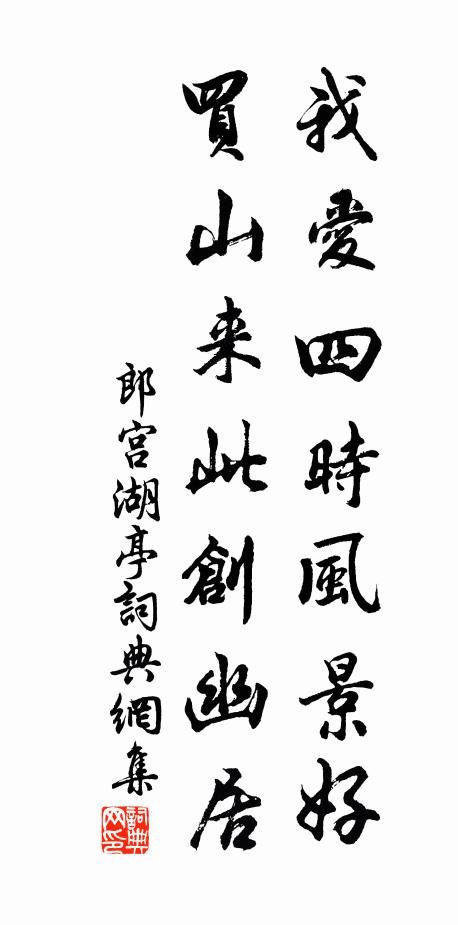 我愛四時風景好
買山来此創幽居
郎宫湖亭詞典網集
詞典
网印